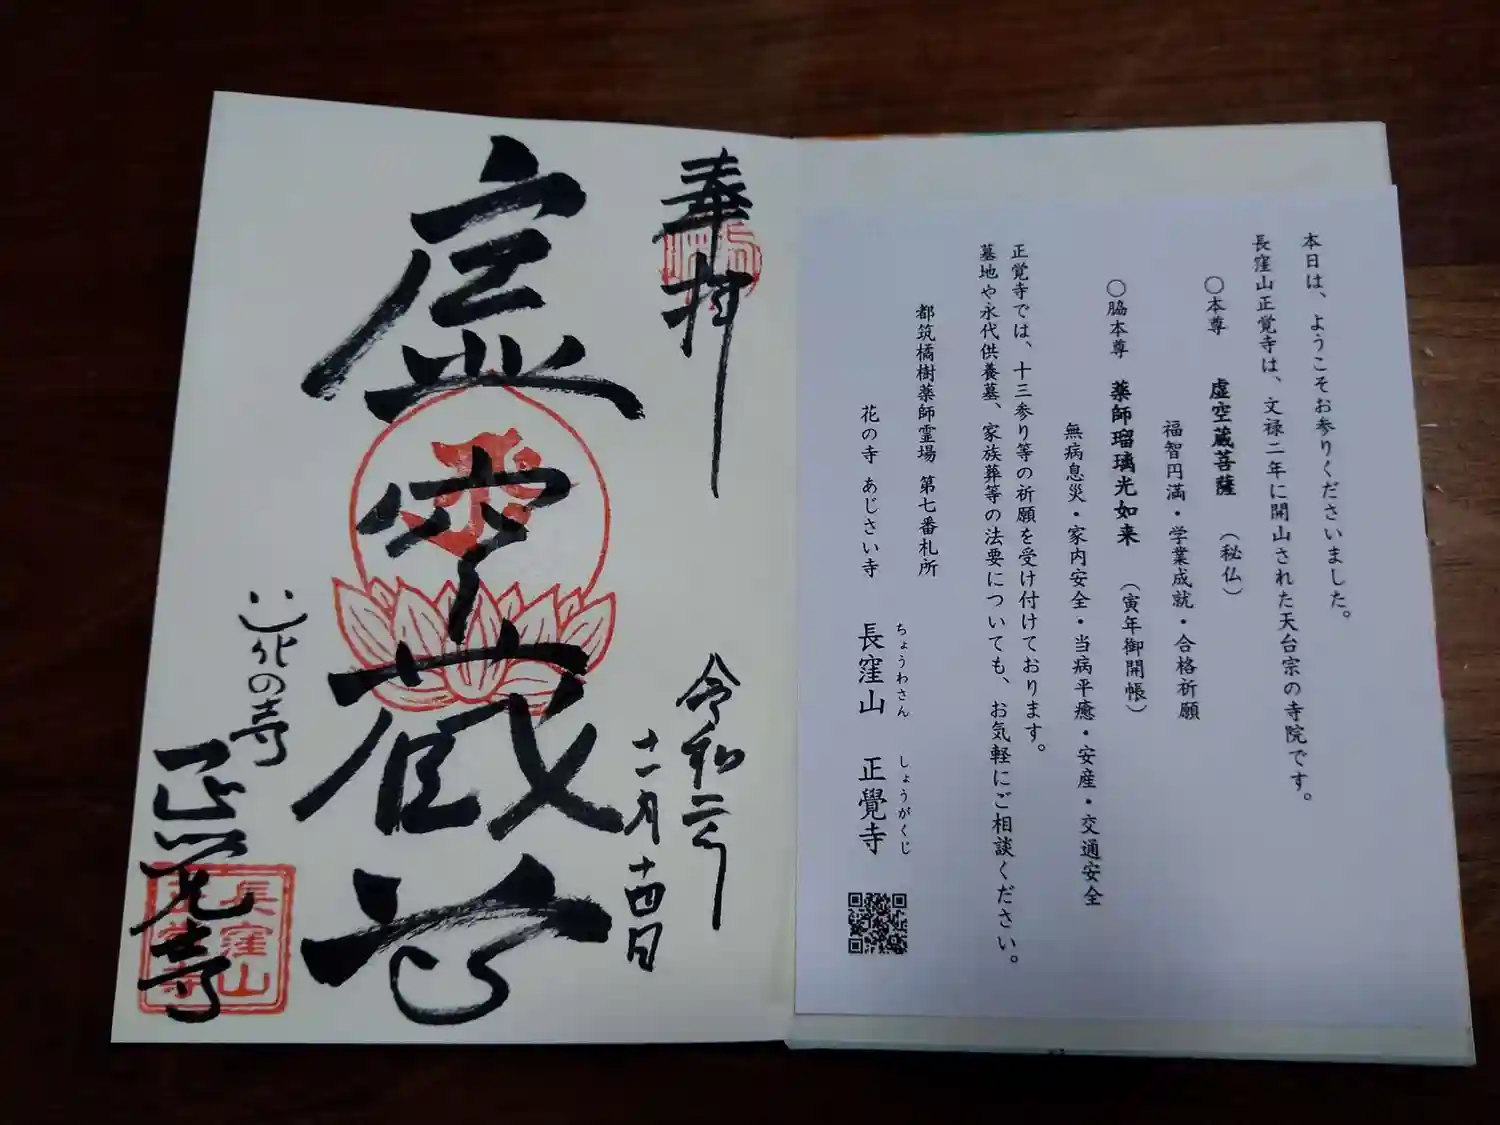 本日は、ようこそお参りくださいました。
長窪山正覚寺は、文禄二年に開山された天台宗の寺院です。
〇本尊 虚空蔵菩薩 (秘仏)
福智円満・学業成就・合格祈願
〇脇本尊 薬師瑠璃光如来 (寅年御開帳)
無病息災・家内安全・当病平癒・安産・交通安全
正覚寺では、十三参り等の祈願を受け付けております。
墓地や永代供養墓、家族葬等の法要についても、お気軽にご相談ください。
都筑橘樹薬師霊場 第七番札所
花の寺 あじさい寺 長窪山 正覺寺
ちょうわさん しょうがくじ
奉拝
令和二年
十一月十四日
虚空蔵尊
花の寺
正覚寺
長窪山
正覚寺